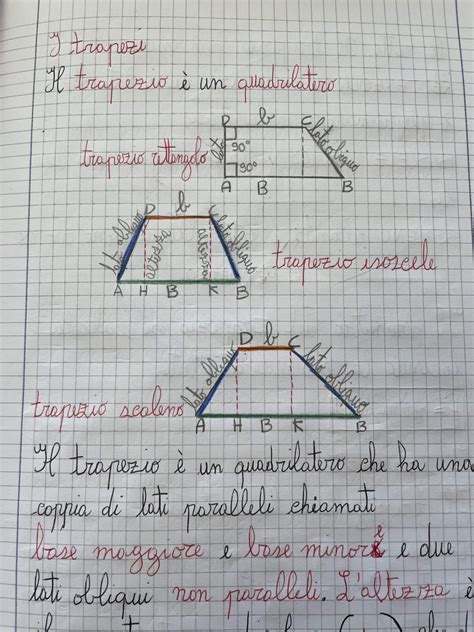 I trapezi
Il trapezio è un quadrilatero
D b C
lato lato obliquo
90°
trapezio rettangolo
90°
A B B
D b C
lato obliquo altezza altezza lato obliquo
trapezio isoscele
A H B K B
D b C
lato obliquo lato obliquo
trapezio scaleno
A H B K B
Il trapezio è un quadrilatero che ha una
coppia di lati paralleli chiamati
base maggiore e base minore e due
lati obliqui non paralleli. L'altezza è